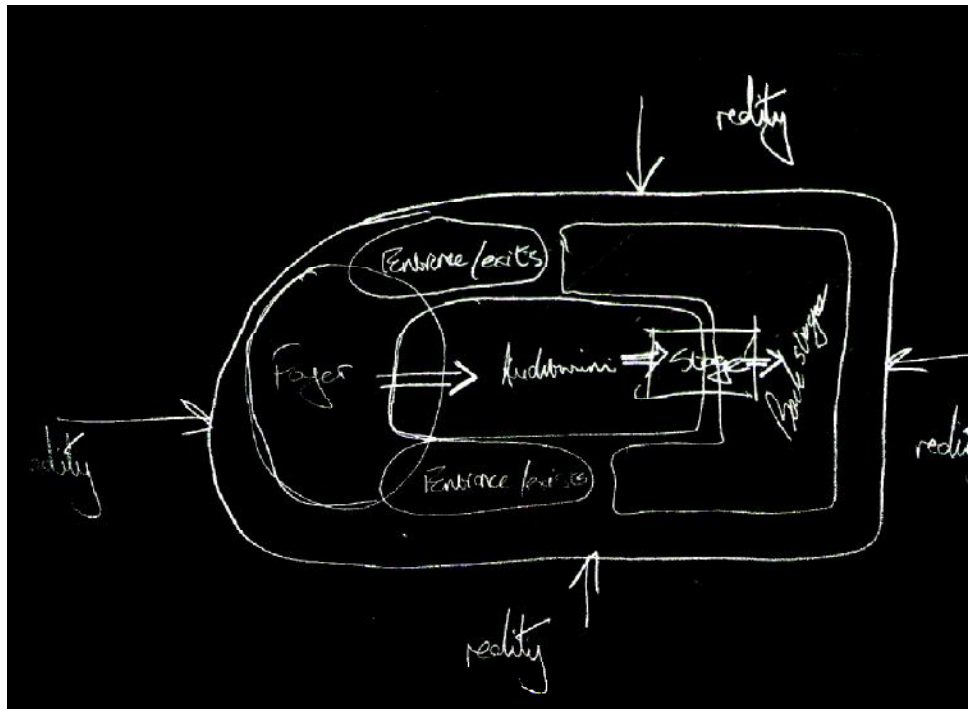 reality
Entrance/exits
Foyer
Auditorium
Stage
Back stage
reality
Entrance/exists
reality